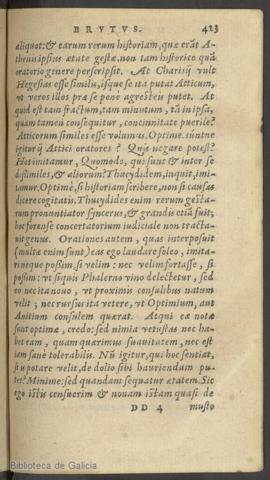 BRVTVS. 423
aliquot: & earum rerum historiam, quæ erāt A-
thenis ipsius ætate gestæ, non tam historico quā
oratorio genere perscripsit. At Charisij vult
Hegesias esse similis, isque se ita putat Atticum,
vt veros illos præ se penè agrestes putet. At
quid est tam fractum, tam minutum, tā in ipsa,
quam tamen consequitur, concinnitate puerile?
Atticorum similes esse volumus. Optimè. suntne
igitur ij Attici oratores? Quis negare potest?
Hos imitamur, Quomodo, qui sunt & inter se
dissimiles, & aliorum? Thucydidem, inquit, imi-
tamur. Optimè, si historiam scribere, non si causas
dicere cogitatis. Thucydides enim rerum gesta-
rum pronuntiator syncerus, & grandis etiā fuit;
hoc forense concertatorium iudiciale non tracta-
uit genus. Orationes autem, quas interposuit
(multæ enim sunt) eas ego laudare soleo, imita-
ri neque possim, si velim: nec velim fortasse, si
possim: vt siquis Phalerno vino delectetur, sed
eo nec ita nouo, vt proximis consulibus natum
velit; nec rursus ita vetere, vt Optimium, aut
Anitium consulem quærat. Atqui eæ notæ
sunt optimæ, credo: sed nimia vetustas nec ha-
bet eam, quam quærimus suauitatem, nec est
iam sanè tolerabilis. Nū igitur, qui hoc sentiat,
si is potare velit, de dolio sibi hauriendum pu-
tet? Minimè: sed quandam sequatur ætatem. Sic
ego istis censuerim & nouam istam quasi de
DD 4 musto
Biblioteca de Galicia